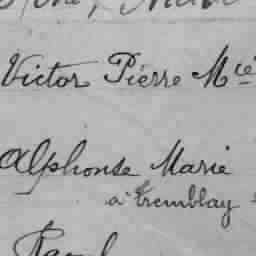 Victor Pierre Mcé
Alphonse Marie
à Tremblay
Paul